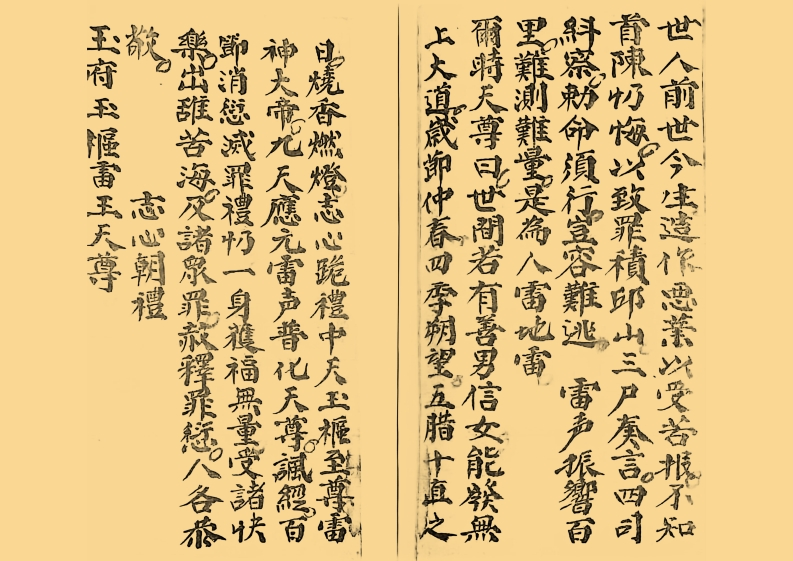 世人前世今生造作惡業以受苦報不知
首陳忉悔以致罪積邱山三尸奏言四司
糾察勅命須行豈容難逃　雷声振響百
里難測難量是為人雷地雷
爾時天尊曰世間若有善男信女能發無
上大道歲節仲春四季朔望五腊十直之
日燒香燃燈志心跪禮中天玉樞至尊雷
神大帝九天應元雷声普化天尊諷經百
節消愆滅罪禮忉一身獲福無量受諸快
樂出離苦海及諸眾罪赦釋罪愆人各恭
敬　　　志心朝禮
玉府玉樞雷王天尊